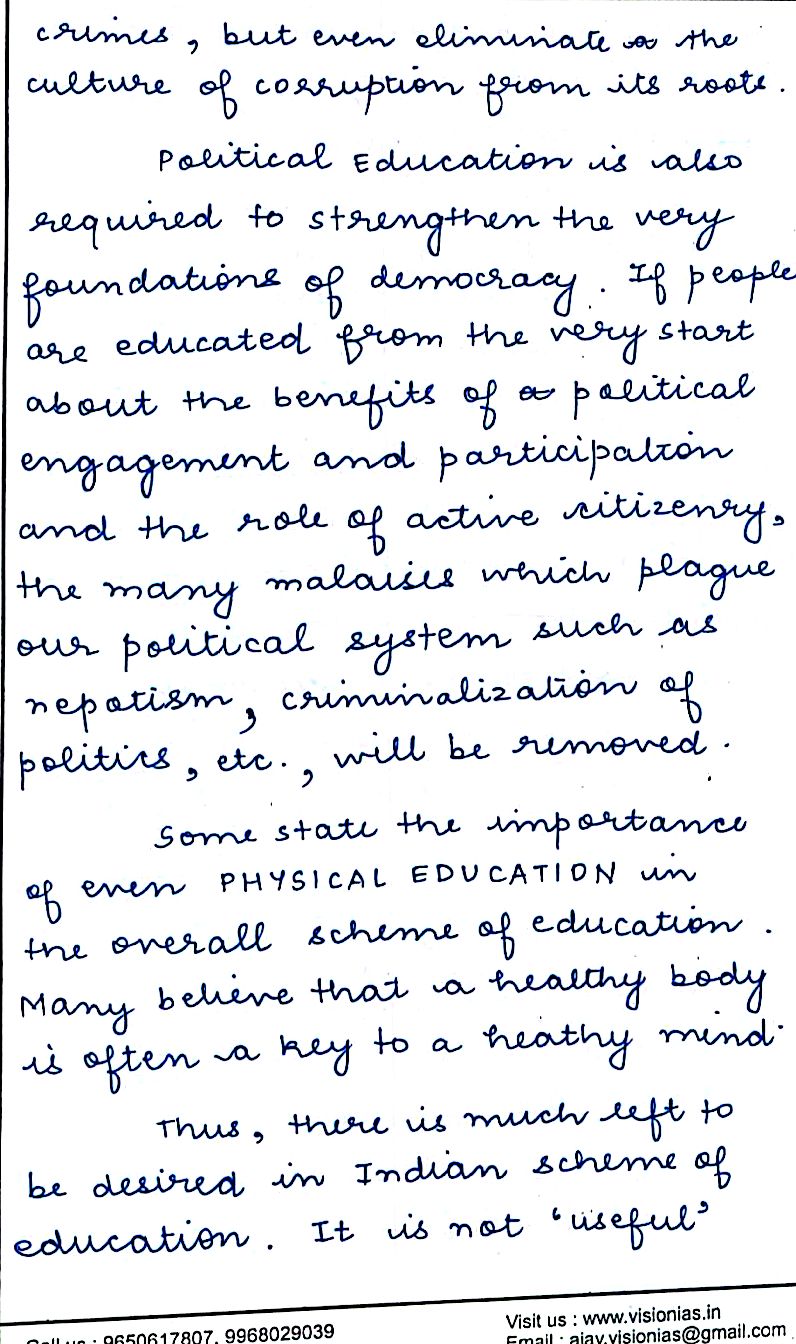 crimes, but even eliminate the
culture of corruption from its roots.
Political Education is also
required to strengthen the very
foundations of democracy. If people
are educated from the very start
about the benefits of political
engagement and participation
and the role of active citizenry,
the many malaises which plague
our political system such as
nepotism, criminalization of
politics, etc., will be removed.
Some state the importance
of even PHYSICAL EDUCATION in
the overall scheme of education.
Many believe that a healthy body
is often a key to a heathy mind.
Thus, there is much left to
be desired in Indian scheme of
education. It is not 'useful'
Call us : 9650617807, 9968029039
Visit us : www.visionias.in
Email : ajay.visionias@gmail.com